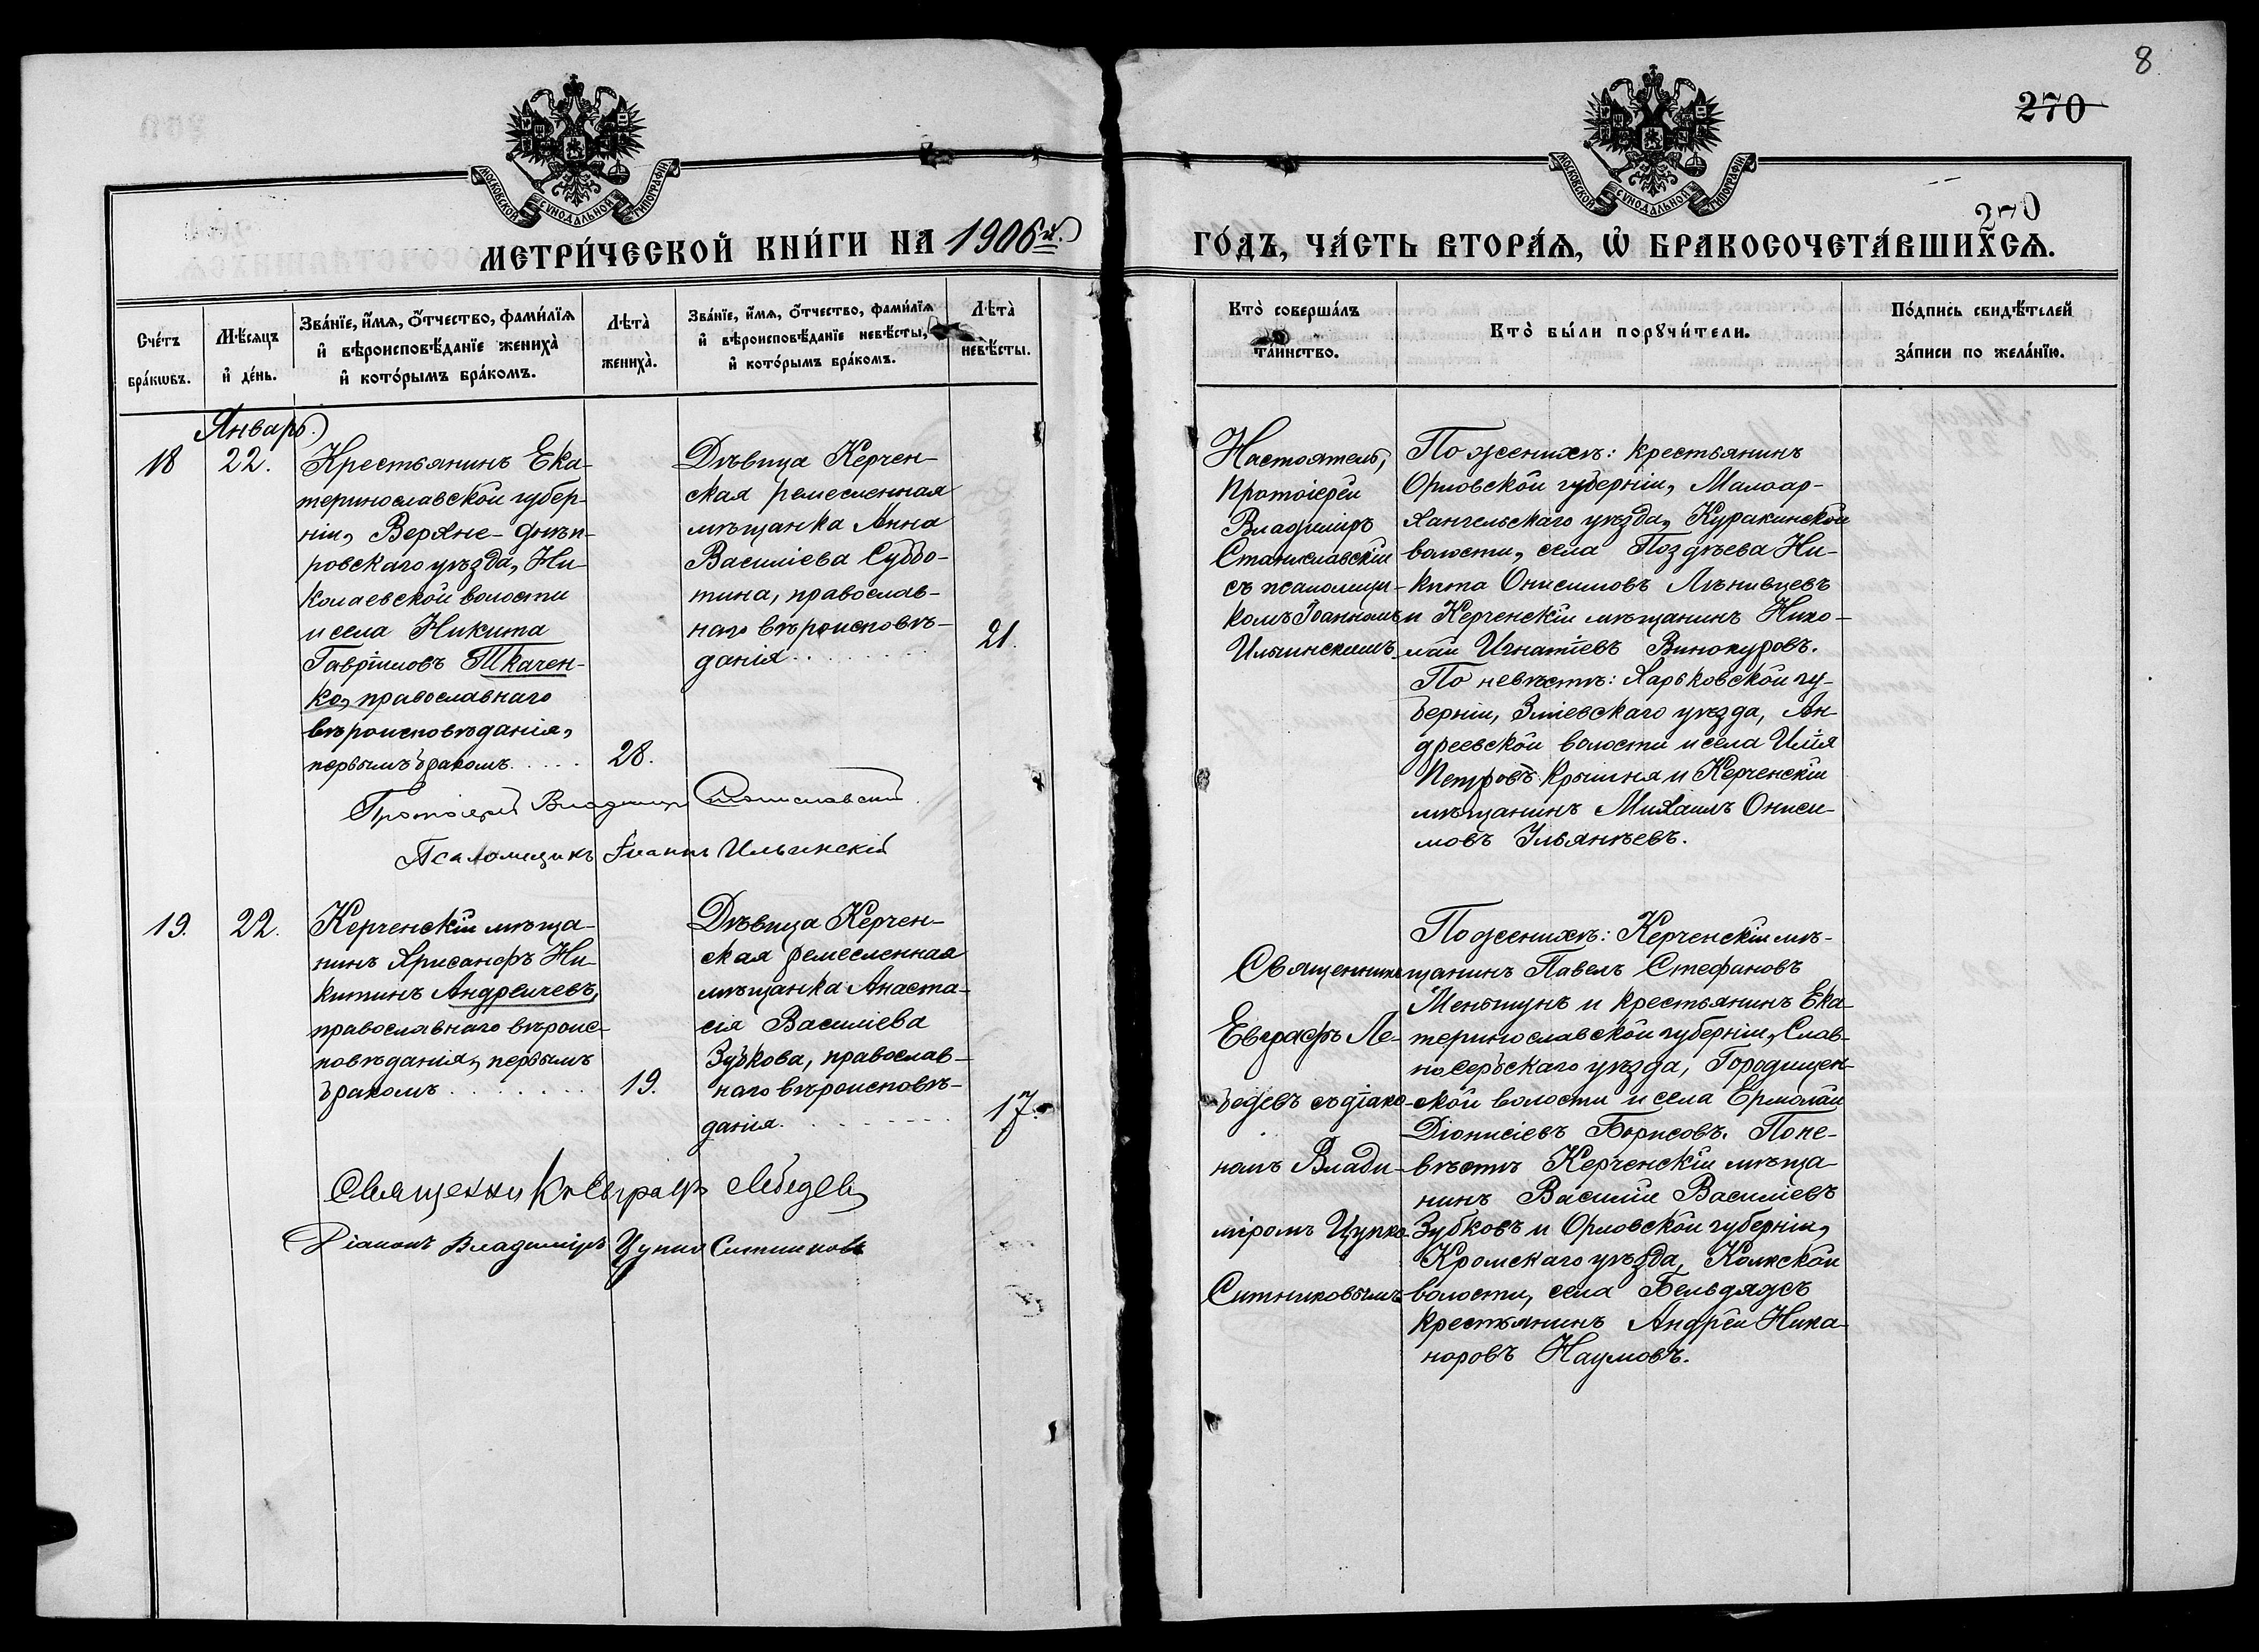 8
270
270
МОСКОВСКОЙ СѴНОДАЛЬНОЙ ТИПОГРАФІИ
МОСКОВСКОЙ СѴНОДАЛЬНОЙ ТИПОГРАФІИ
МЕТРИ́ЧЕСКОЙ КНИ́ГИ НА 1906 й.
ГО́ДЪ, ЧА́СТЬ ВТОРА́Ѧ, Ѡ҆ БРАКОСОЧЕТА́ВШИХСѦ.
Сче́тъ
бра́кѡвъ.
Мѣ́сѧцъ
и҆ де́нь.
Зва́нїе, и҆́мѧ, ѻ҆́тчество, фами́лїѧ
и҆ вѣроисповѣ́данїе жениха̀
и҆ кото́рымъ бра́комъ.
Лѣта̀
жениха̀.
Зва́нїе, и҆́мѧ, ѻ҆́тчество, фами́лїѧ
и҆ вѣроисповѣ́данїе невѣ́сты,
и҆ кото́рымъ бра́комъ.
Лѣта̀
невѣ́сты.
Кто̀ соверша́лъ
та́инство.
Кто̀ бы́ли порꙋчи́тели.
По́дпись свидѣ́телей
за́писи по жела́нїю.
Январь.
18
22.
Крестьянинъ Ека-
теринославской губер-
ніи, Верхне-Днѣп-
ровскаго уѣзда, Ни-
колаевской волости
и села Никита
Гавріиловъ Ткачен-
ко, православнаго
вѣроисповѣданія,
первымъ бракомъ.....
28.
Дѣвица Керчен-
ская ремесленная
мѣщанка Анна
Василіева Суббо-
тина, православ-
наго вѣроисповѣ-
данія.........
21.
Протоіерей Владиміръ Станиславскій.
Псаломщикъ Іоаннъ Ильинскій
Настоятель,
Протоіерей
Владиміръ
Станиславскій
съ псаломщи-
комъ Іоанномъ
Ильинскимъ.
По женихѣ: крестьянинъ
Орловской губерніи, Малоар-
хангельскаго уѣзда, Куракинской
волости, села Поздѣева Ни-
кита Онисимовъ Лѣнивцевъ
и Керченскій мѣщанинъ Нико-
лай Игнатіевъ Винокуровъ.
По невѣстѣ: Харьковской гу-
берніи, Зміевскаго уѣзда, Ан-
дреевской волости и села Илія
Петровъ Крышня и Керченскій
мѣщанинъ Михаилъ Ониси-
мовъ Ульянѣевъ.
19.
22.
Керченскій мѣща-
нинъ Хрисанфъ Ни-
китинъ Андреичевъ,
православнаго вѣроис-
повѣданія, первымъ
бракомъ.......
19.
Дѣвица Керчен-
ская ремесленная
мѣщанка Анаста-
сія Василіева
Зубкова, православ-
наго вѣроисповѣ-
данія.........
17.
Священникъ Евграфъ Лебедевъ
Діаконъ Владиміръ Цупко Ситниковъ
Священникъ
Евграфъ Ле-
бедевъ съ діако-
номъ Влади-
міромъ Цупко-
Ситниковымъ
По женихѣ: Керченскій мѣ-
щанинъ Павелъ Стефановъ
Меньшунъ и крестьянинъ Ека-
теринославской губерніи, Слав-
носербскаго уѣзда, Городищен-
ской волости и села Ермолай
Діонисіевъ Борисовъ. По не-
вѣстѣ Керченскій мѣща-
нинъ Василій Василіевъ
Зубковъ и Орловской губерніи,
Кромскаго уѣзда, Колкской
волости, села Бельдядь
крестьянинъ Андрей Ника-
норовъ Наумовъ.